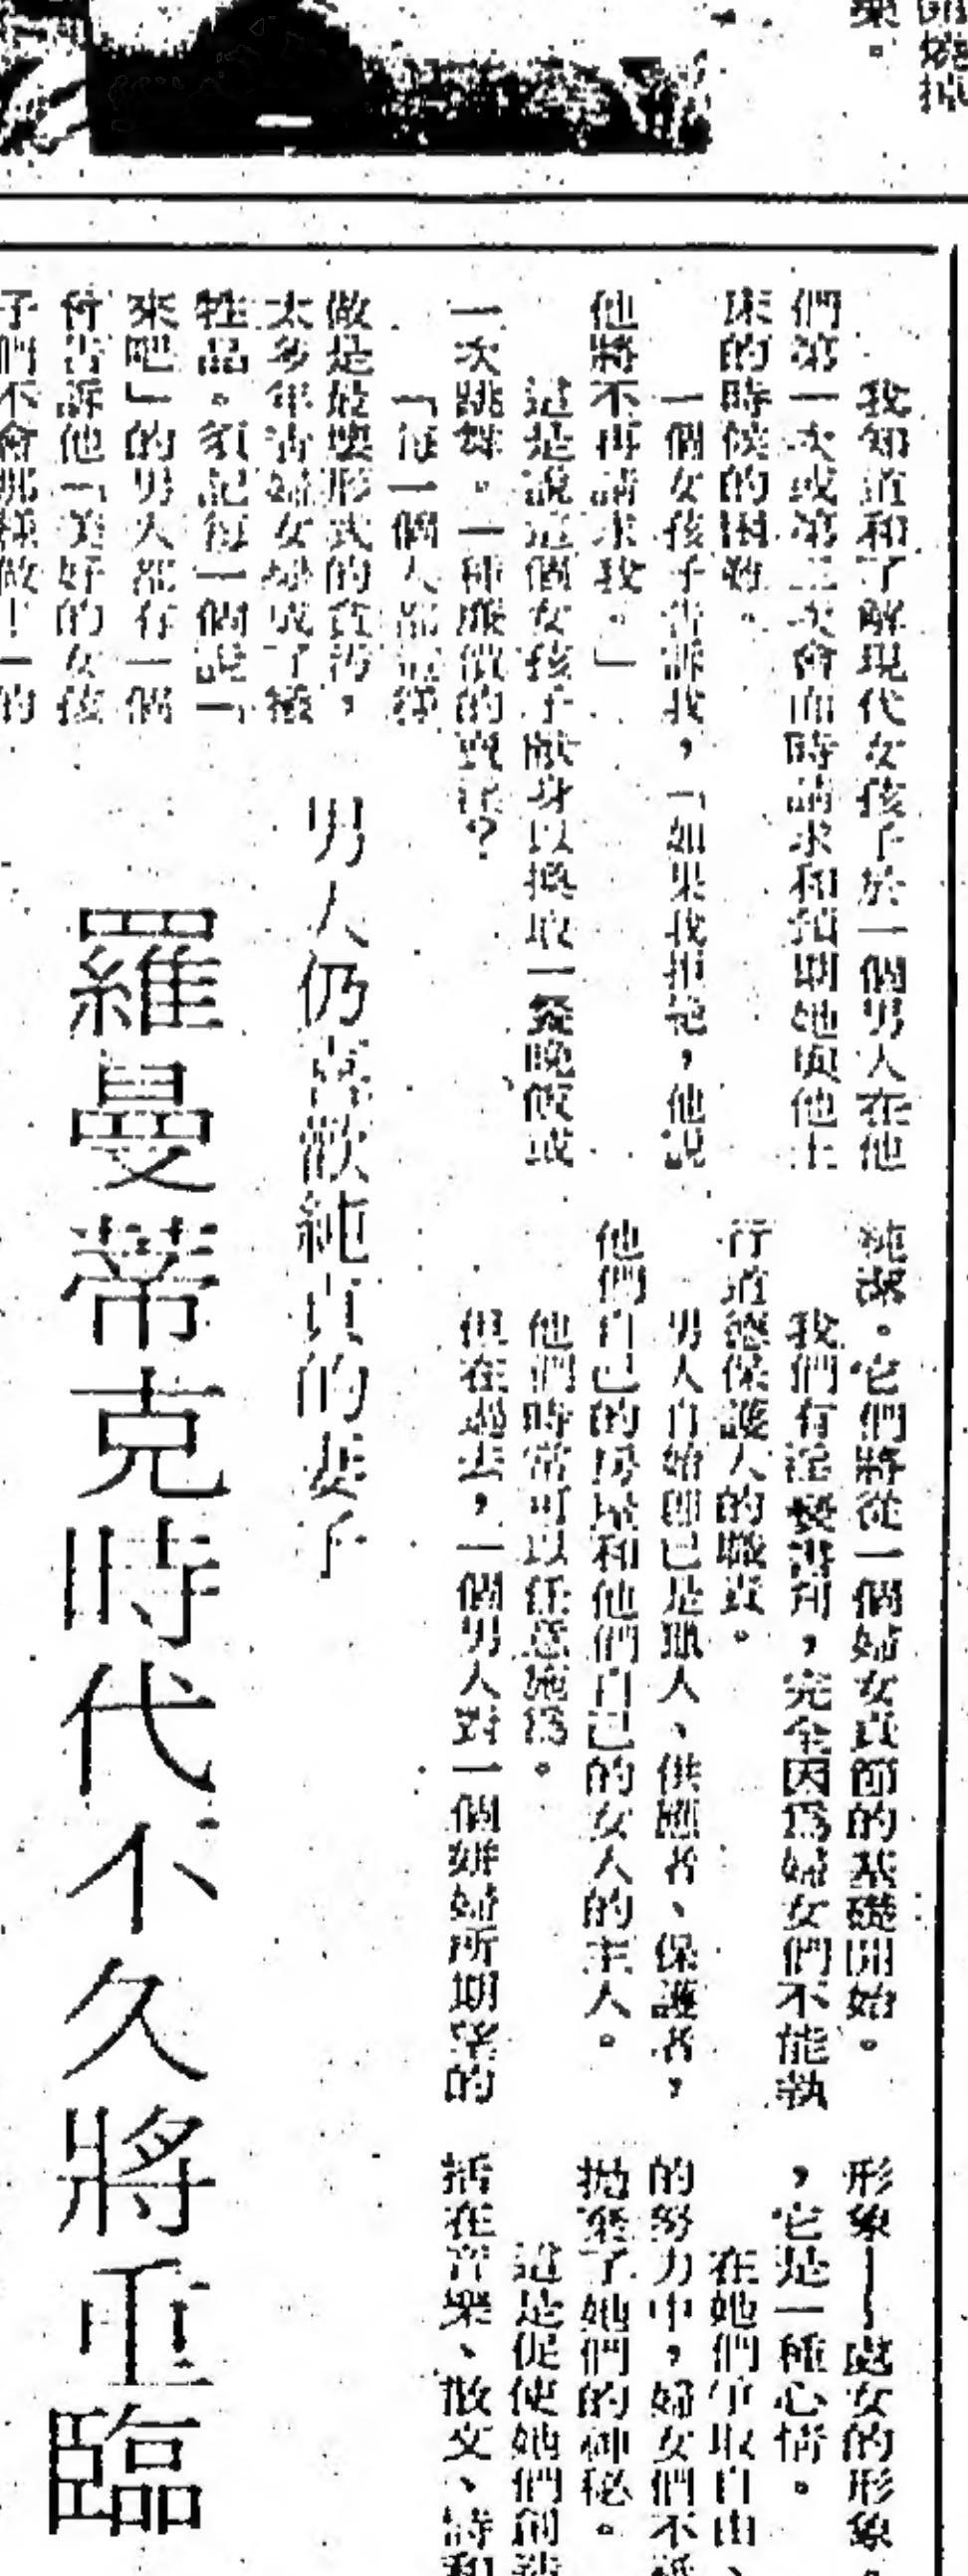 開燒掉
樂。
羅曼蒂克時代不久將重臨
男人仍喜歡純真的妻子
我知道和了解現代女孩子於一個男人在他
們第一次或第二次會面時請求和預期她與他上
床的時候的困難。
一個女孩子告訴我，「如果我拒絕，他說
他將不再請求我。」
這是說這個女孩子獻身以換取一餐晚飯或
一次跳舞。一種廉價的賣淫？
「每一個人都這樣
做是最壞形式的貪污，
太多年青婦女變成了犧
牲品。須記每一個說「
來吧」的男人都有一個
告訴他「美好的女孩
子們不會那樣做！」的
純潔。它們將從一個婦女貞節的基礎開始。
我們有淫褻書刊，完全因爲婦女們不能執
行道德保護人的職責。
男人自始即已是獵人、供應者、保護者，
他們自己的房屋和他們自己的女人的主人。
他們時常可以任意施爲。
但在過去，一個男人對一個姘婦所期望的
形象——處女的形象，
，它是一種心情。
在她們爭取自由、
的努力中，婦女們不
拋棄了她們的神秘。
這是促使她們創造
括在音樂、散文、詩和